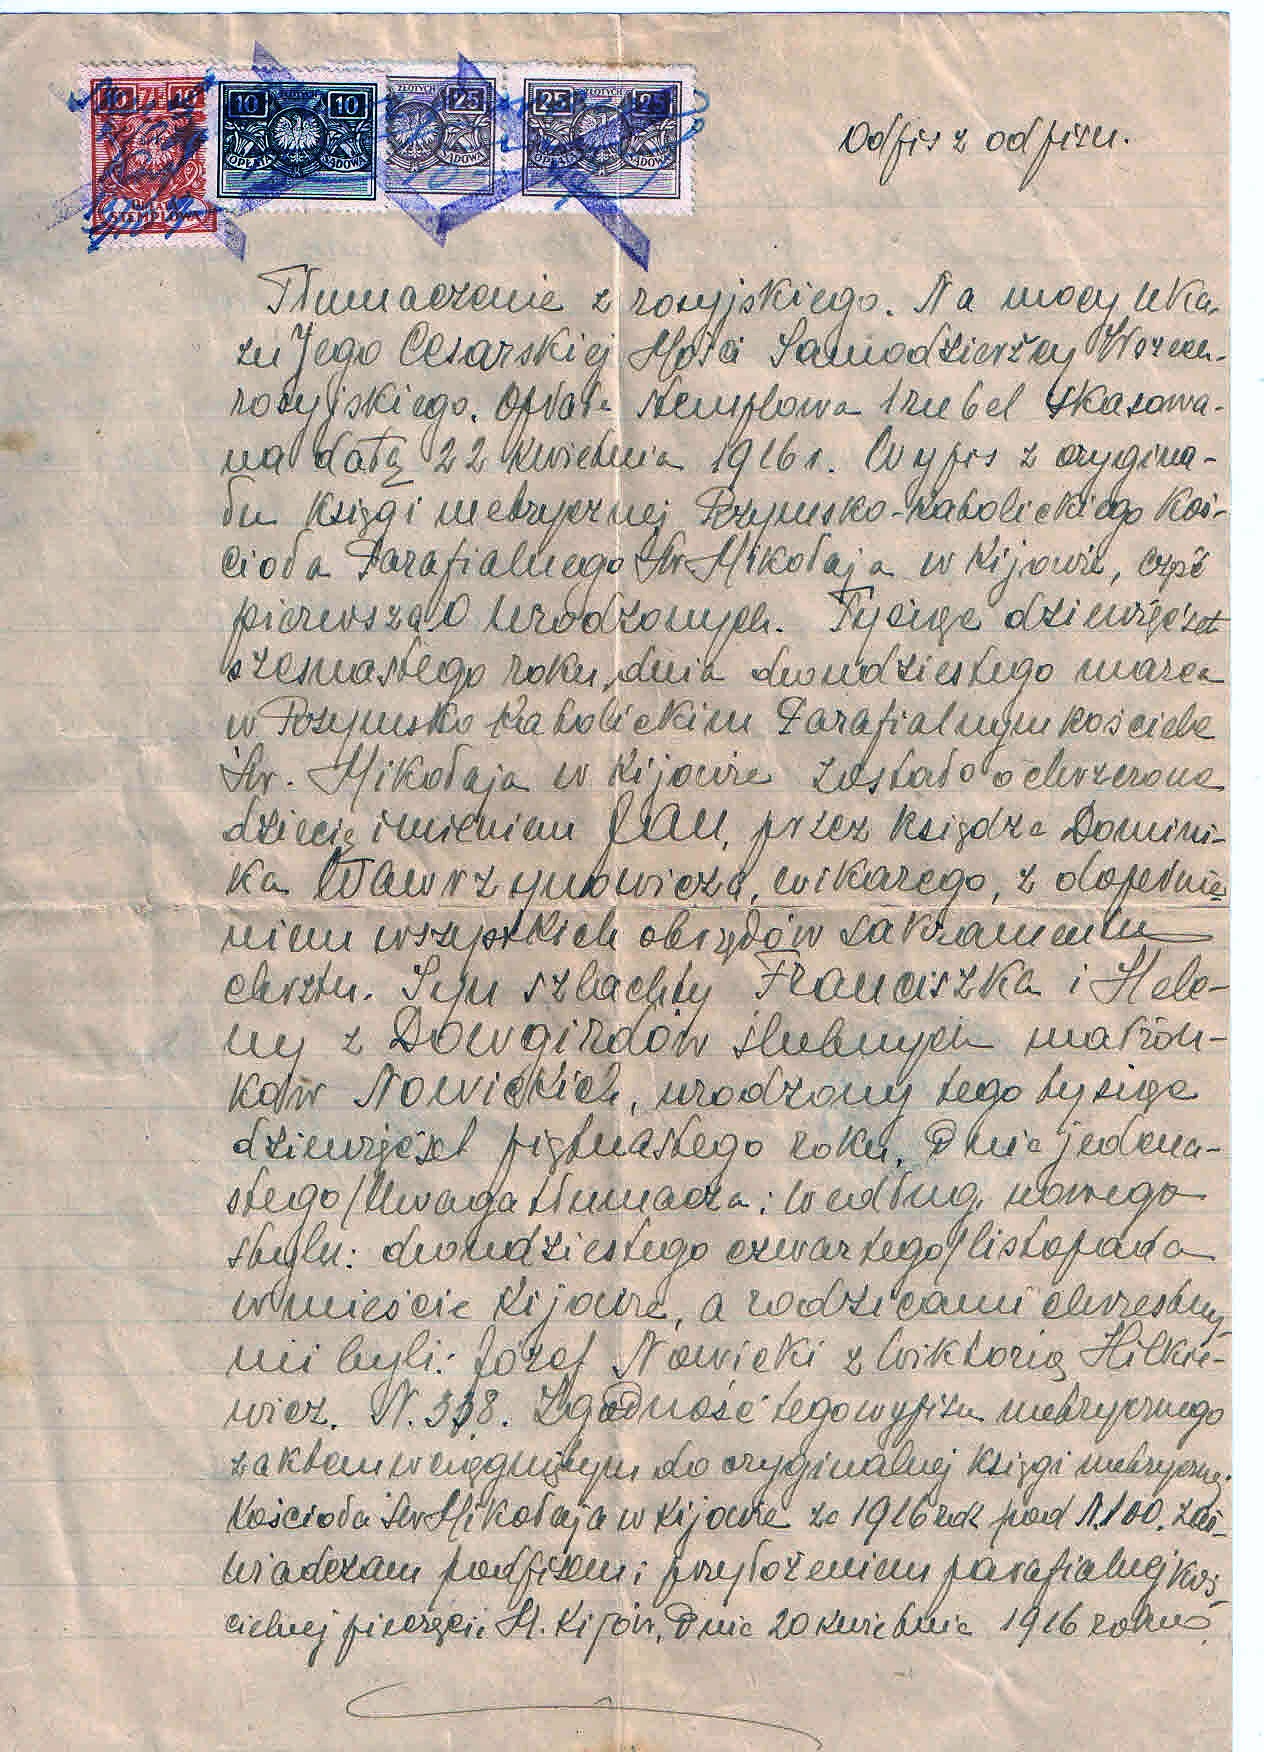 10 ZŁ 10
OPŁATA
STEMPLOWA
10 ZŁOTYCH 10
OPŁATA SĄDOWA
ZŁOTYCH 25
SĄDOWA
25 ZŁOTYCH 25
OPŁATA SĄDOWA
Odpis z odpisu.
Tłumaczenie z rosyjskiego. Na mocy uka-
zu Jego Cesarskiej Mości Samodzierżcy Wszech-
rosyjskiego. Opłata stemplowa 1 rubel skasowa-
na datą 22 kwietnia 1916 r. Wypis z orygina-
łu księgi metrycznej Rzymsko-Katolickiego Koś-
cioła Parafialnego Św Mikołaja w Kijowie, część
pierwsza O urodzonych. Tysiąc dziewięćset
szesnastego roku, dnia dwudziestego marca
w Rzymsko Katolickim Parafialnym kościele
Św. Mikołaja w Kijowie zostało ochrzczone
dziecię imieniem JAN, przez księdza Domini-
ka Wawrzynowicza, wikarego, z dopełnie
niem wszystkich obrzędów sakramentu
chrztu. Syn szlachty Franciszka i Hele-
ny z Dowgirdów ślubnych małżon-
ków Nowickich, urodzony tego tysiąc
dziewięćset piętnastego roku, Dnia jedena-
stego/Uwaga tłumacza: według nowego
stylu: dwudziestego czwartego/listopada
w mieście Kijowie, a rodzicami chrzestny-
mi byli: Józef Nowicki z Wiktorią Hilkie-
wicz. N. 338. Zgodność tego wypisu metrycznego
z aktem wciągniętym do oryginalnej księgi metrycznej
Kościoła Św Mikołaja w Kijowie za 1916 rok pod N. 100. zaś-
wiadczam podpisem i przyłożeniem parafialnej koś-
cielnej pieczęci. M. Kijów, Dnia 20 kwietnia 1916 roku